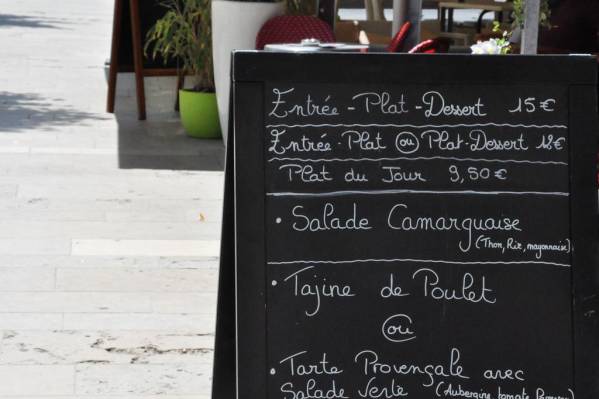 Entrée - Plat - Dessert 15€
Entrée - Plat ou Plat - Dessert 12€
Plat du Jour 9,50€
• Salade Camarguaise
(Thon, Riz, mayonnaise)
• Tajine de Poulet
ou
• Tarte Provençale avec
Salade verte (Aubergine, tomate,